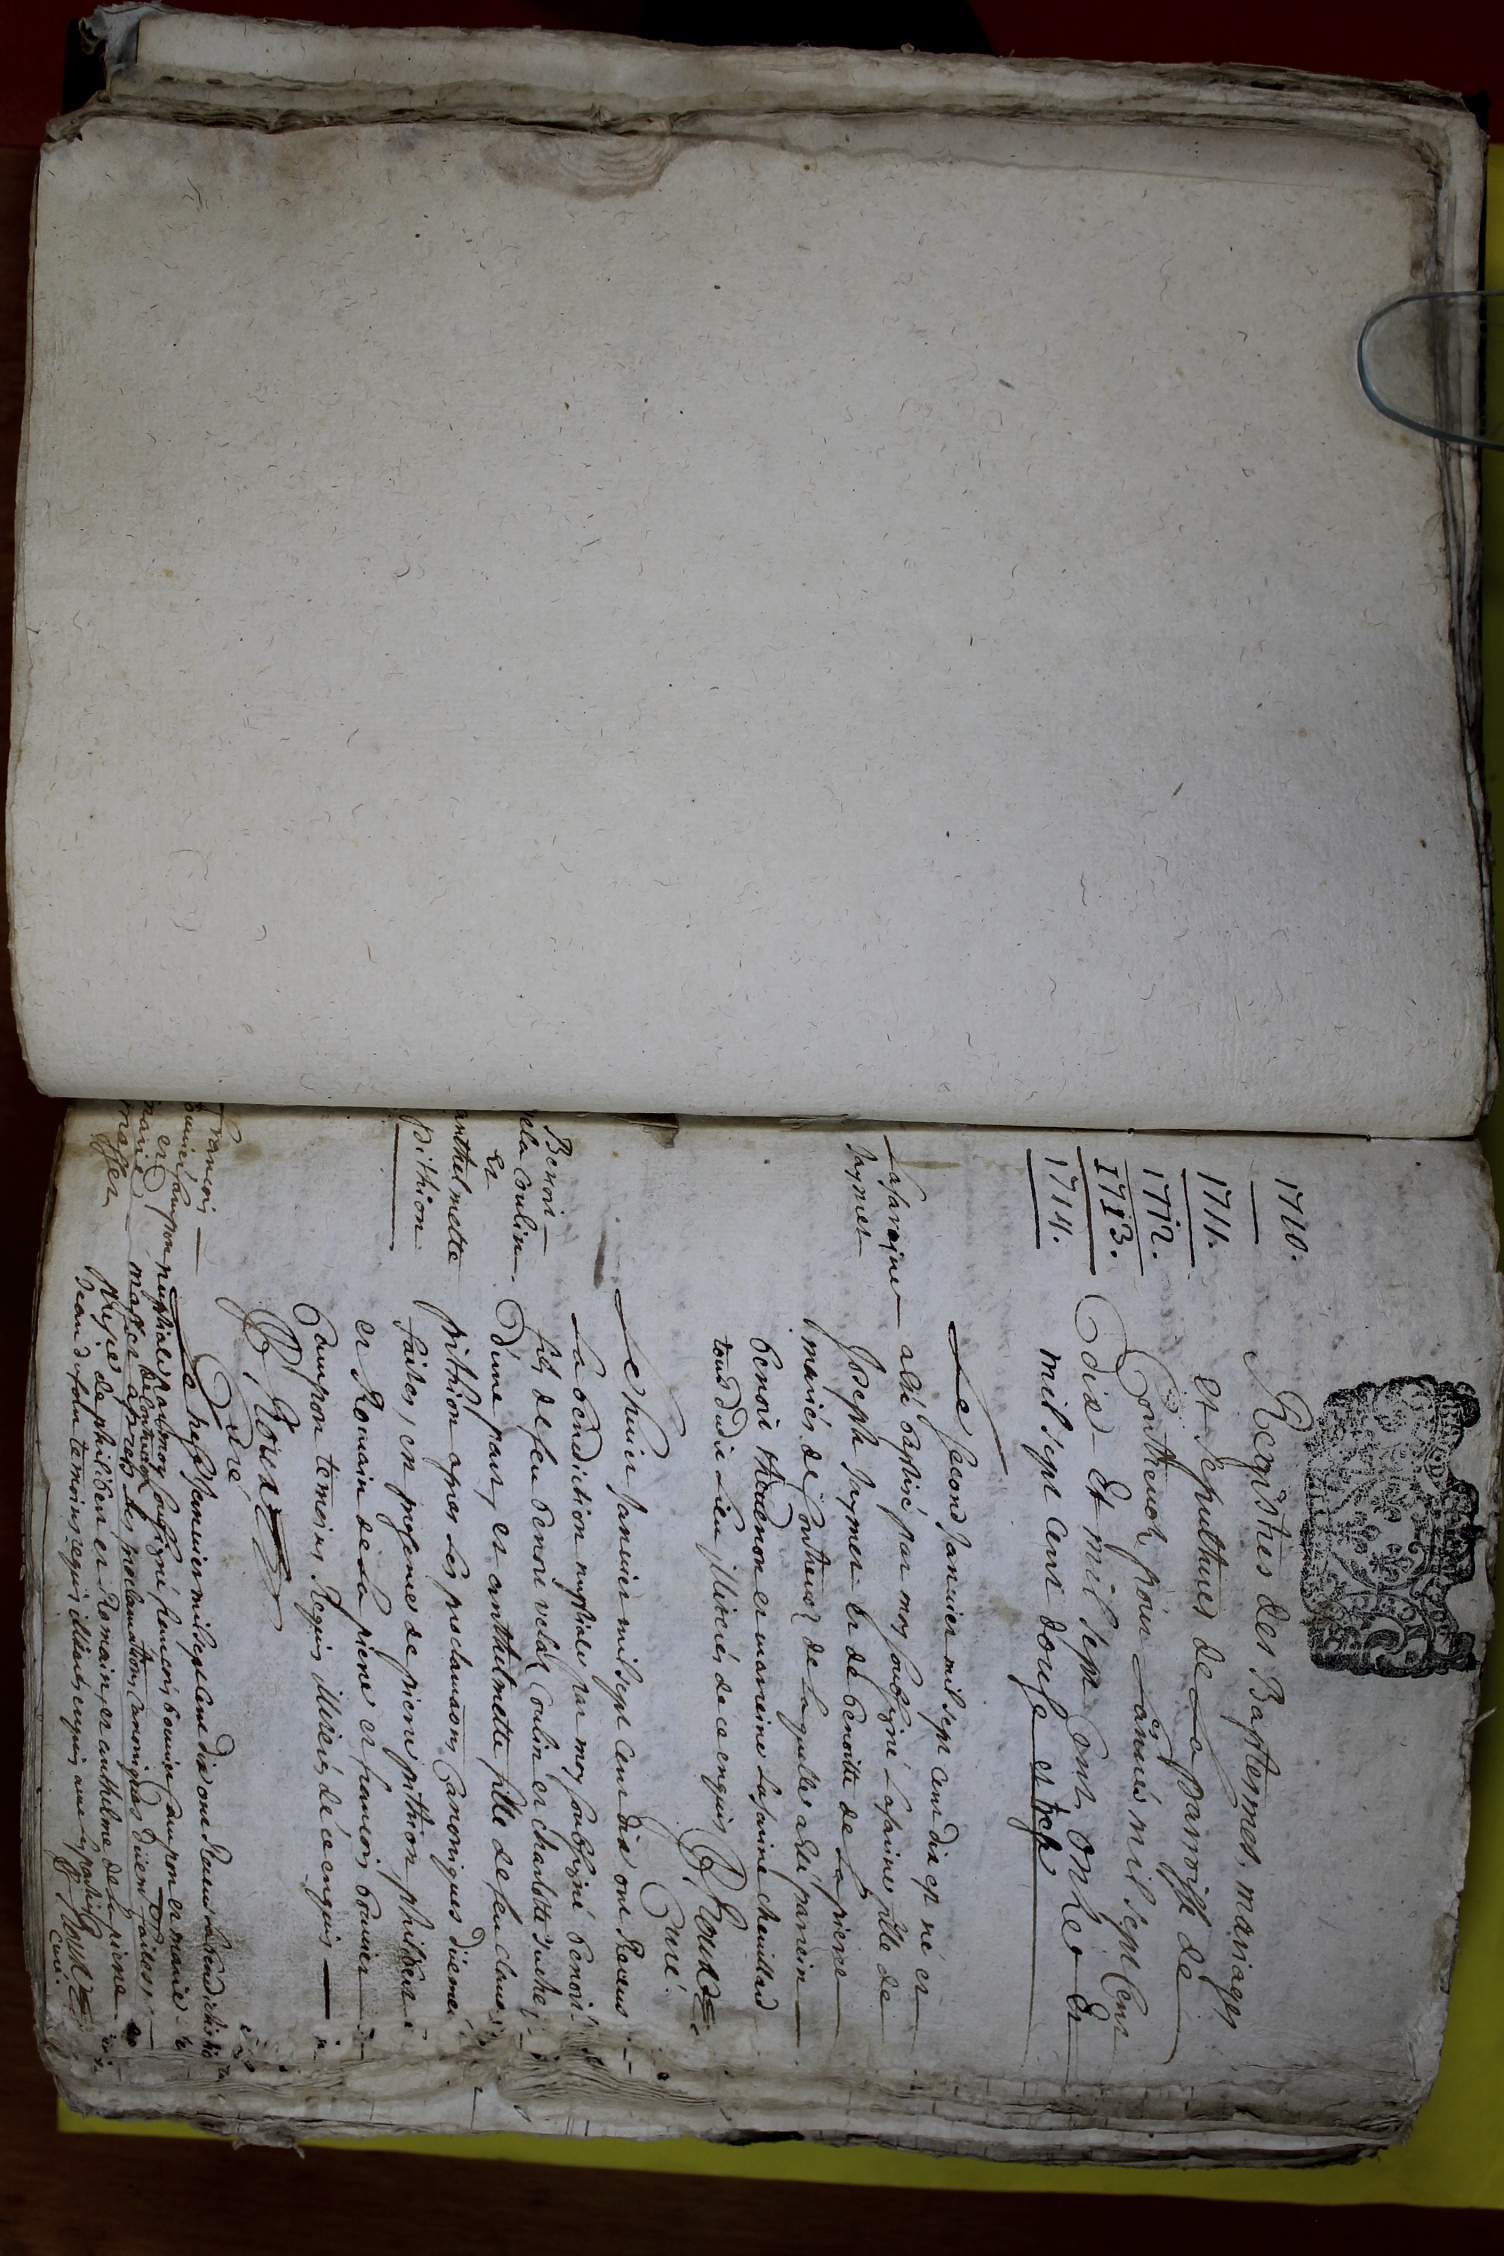 1710.
1711.
1712.
1713.
1714.
Registres des Baptesmes, mariages
et sepultures de La parroisse de
Contrevoz pour Lannés mil sept Cent
Dix Et mil sept Cent onze Et
mil sept cent douse et
Lasarine
Jaymet
Le second Janvier mil sept cent dix est né et
a esté baptisé par moy soubsigné Lasarine fille de
Joseph Jaymet et de benoitte de La pierre
mariés de Contrevoz de laquelle a esté parrein
benoit et marrine Lasarine
tous dudit Lieu illiterés de ce enquis
B Roux
Curé.
Benoi
vela Coulin
et
anthelmette
pithion
Le huict Janvier mil sept cent dix ont Receus
La benediction nuptiale par moy soubsigné benoi
fils de feu benoi vela Coulin et charlotte
D'une part, et anthelmette fille de feu claude
pithion apres Les proclamaôns Canoniques düement
faites, en presence de pierre pithion philibert
et Romain de La pierre et francois bouvier
Campon temoins Requis illiterés de ce enquis
B Roux
Curé
francois
bouvier Campon
et
marie
masson
Le Janvier mil sept cent dix ont Receus La benediction
nuptiale par moy soubsigné francois bouvier Campon et marie
apres les proclamations Canoniques düement faites
de philibert et Romain, et anthelme de La pierre
Jean temoins requis illiterés enquis avec les parties
B Roux
Curé.